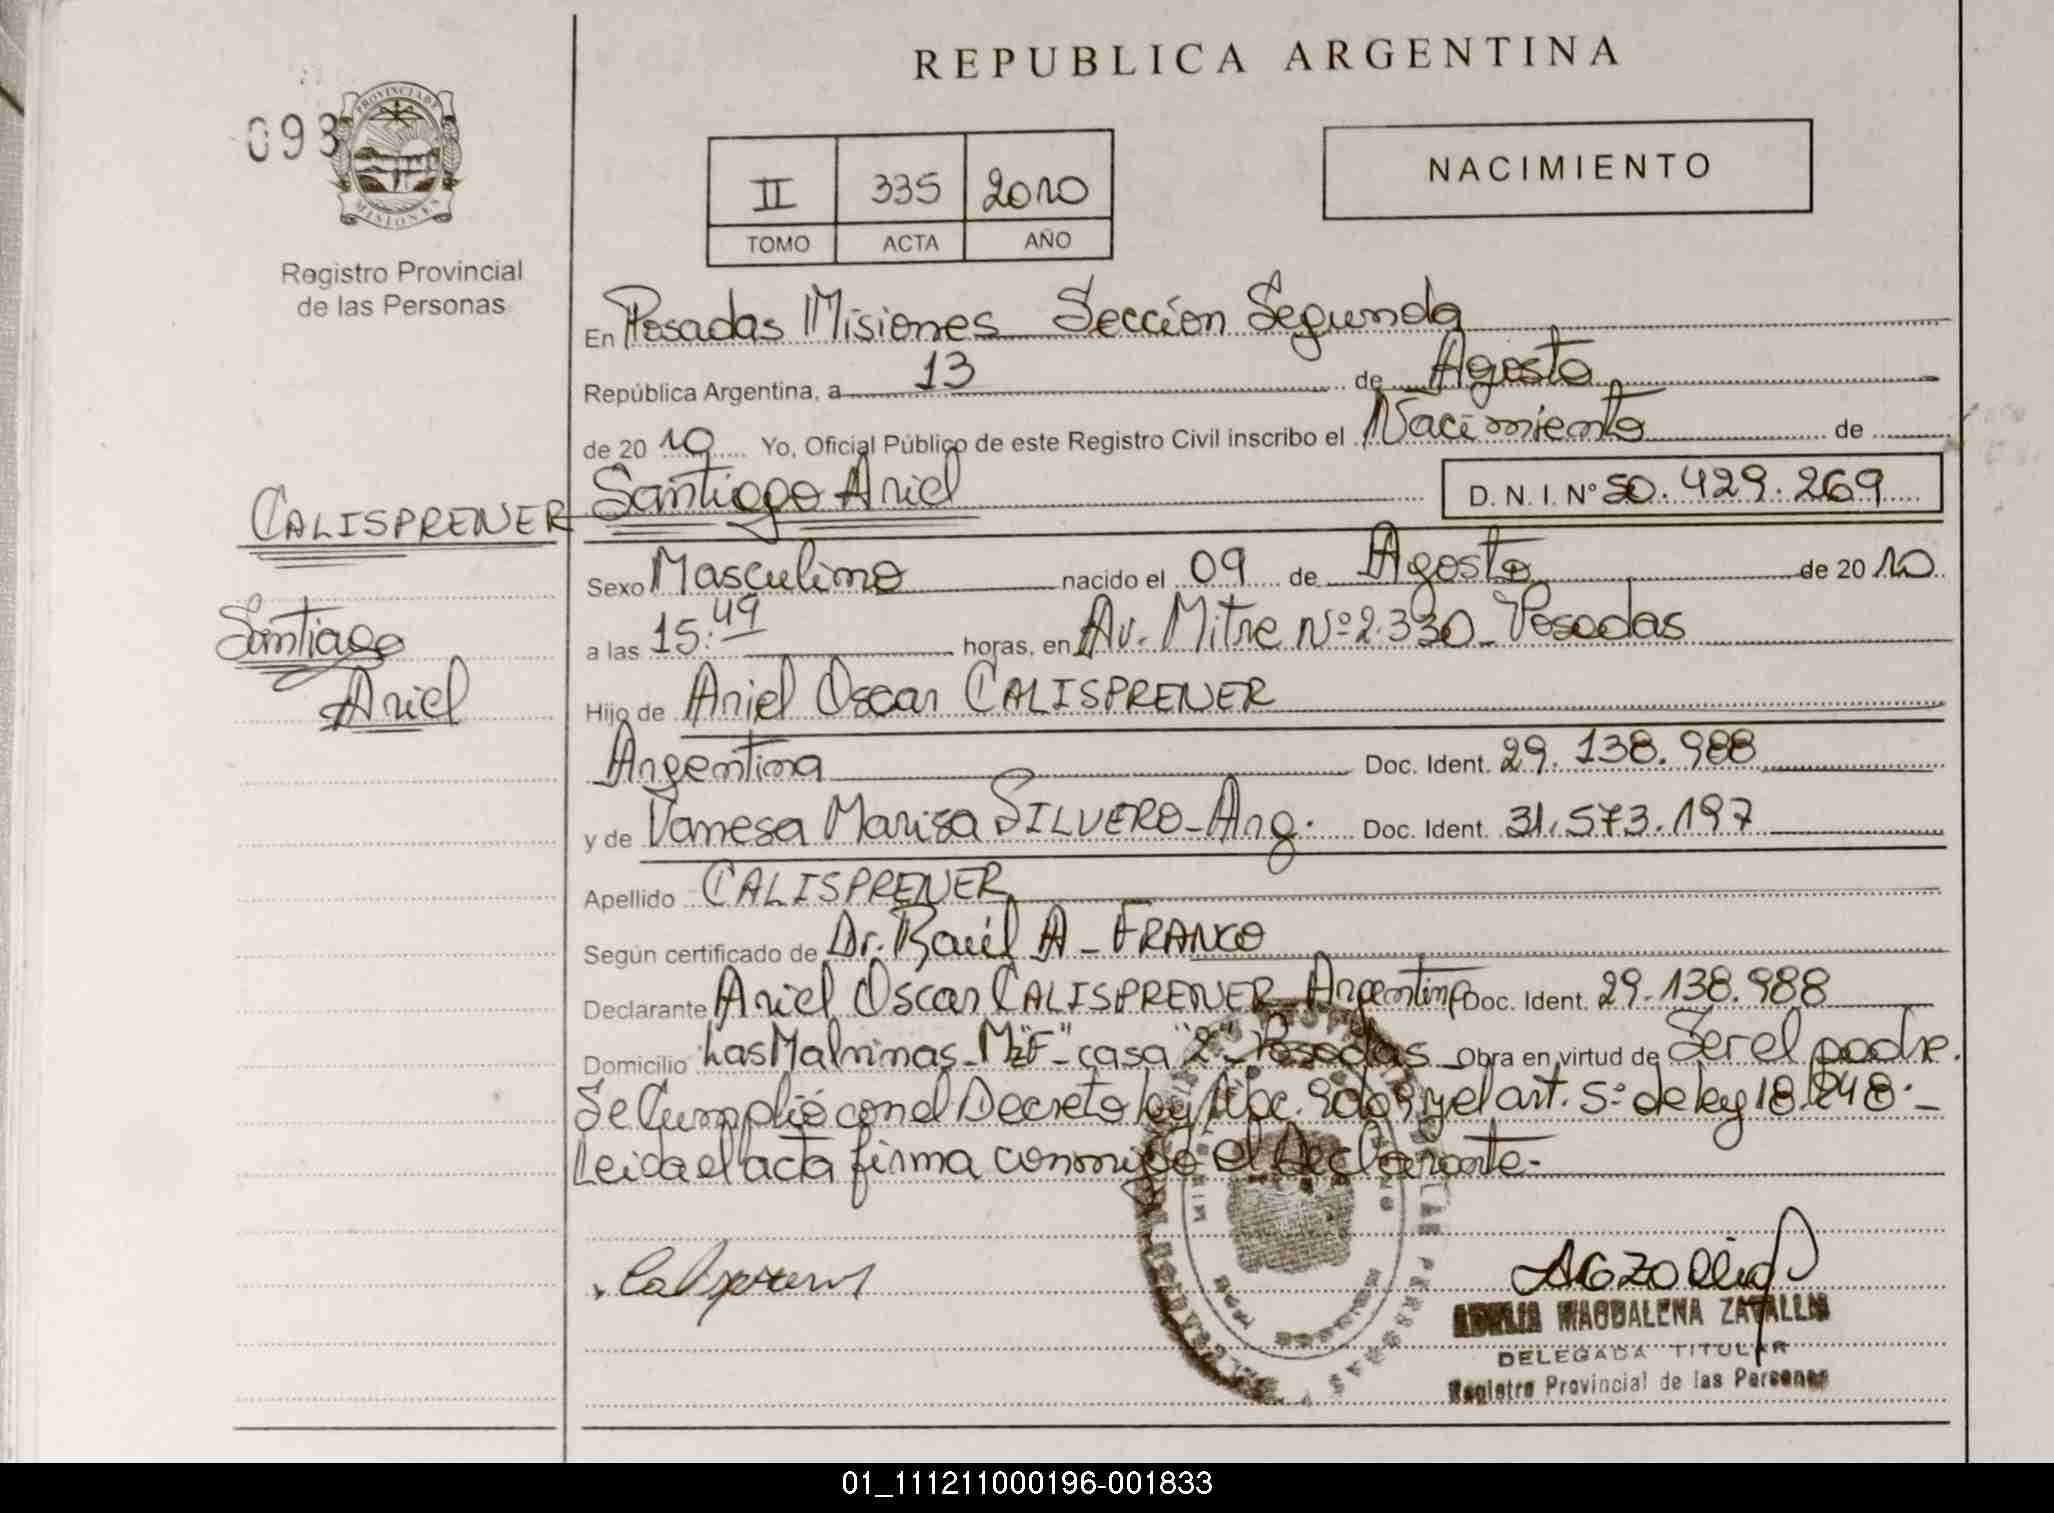 REPUBLICA ARGENTINA
093
PROVINCIA DE
MISIONES
Registro Provincial
de las Personas
II 335 2010
TOMO ACTA AÑO
NACIMIENTO
En Posadas Misiones Sección Segunda
República Argentina, a 13 de Agosto
de 2010 Yo, Oficial Público de este Registro Civil inscribo el Nacimiento de
Santiago Ariel D. N. I. Nº 50.429.269
CALISPRENER
Santiago
Ariel
Sexo Masculino nacido el 09 de Agosto de 2010
a las 15:49 horas, en Av. Mitre Nº 2.330 - Posadas
Hijo de Ariel Oscar CALISPRENER
Argentina Doc. Ident. 29.138.988
y de Vanesa Marisa SILVERO - Arg. Doc. Ident. 31.573.197
Apellido CALISPRENER
Según certificado de Dr. Raúl A - FRANCO
Declarante Ariel Oscar CALISPRENER Argentino Doc. Ident. 29.138.988
Domicilio Las Malvinas - Mz "F" - casa "2" - Posadas - Obra en virtud de Ser el padre.
Se Cumplió con el Decreto ley y el art. 5º de ley 18.248.-
Leida el acta firma conmigo el Declarante.-
ADELIA MAGDALENA ZAVALLIA
DELEGADA TITULAR
Registro Provincial de las Personas
01_111211000196-001833